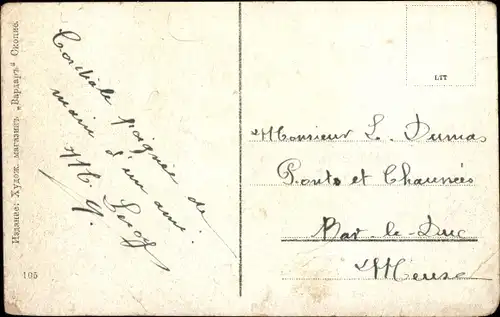 Издание: Худож. магазинъ „Вардаръ“ Скопие.
105
Cordiale poignée de
main d'un ami.
LIT
Monsieur L. Dumas
Ponts et Chaussées
Bar-le-Duc
Meuse